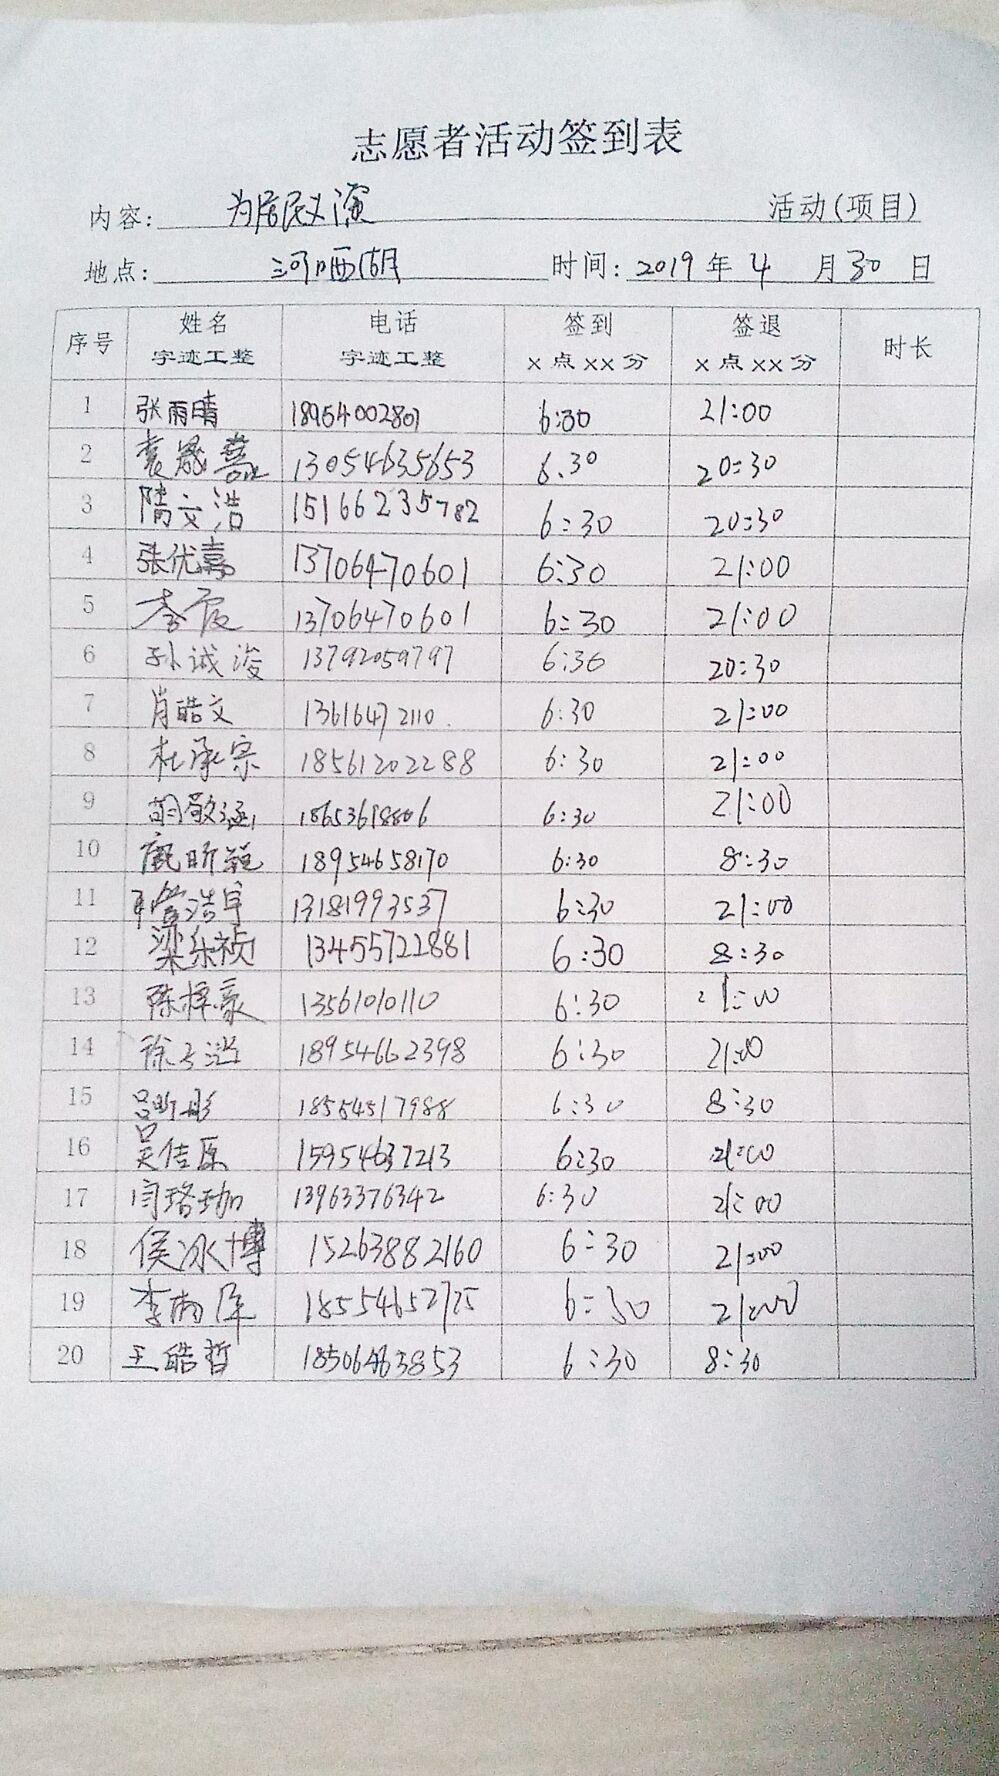 志愿者活动签到表
内容: 为居民义演 活动(项目)
地点: 时间: 2019 年 4 月 30 日
序号 姓名 电话 签到 签退 时长
字迹工整 字迹工整 x 点 xx 分 x 点 xx 分
1 张雨晴 18954002807 6:30 21:00
2 袁晟嘉 13054635653 6.30 20:30
3 隋文浩 15166235782 6:30 20:30
4 张优嘉 13706470601 6:30 21:00
5 李霞 13706470601 6:30 21:00
6 孙诚浚 13792059797 6:30 20:30
7 肖皓文 13616472110. 6:30 21:00
8 杜承宗 18561202288 6:30 21:00
9 胡敬涵 18653618806 6:30 21:00
10 鹿昕 18954658170 6:30 8:30
11 管浩宇 13181993537 6:30 21:00
12 梁乐祯 13455722881 6:30 8:30
13 陈梓豪 13561010110 6:30 21:00
14 徐子 18954662398 6:30 21:00
15 吕昕彤 18554517988 6:30 8:30
16 吴佳原 15954637213 6:30 21:00
17 闫珞珈 13963376342 6:30 21:00
18 侯冰博 15263882160 6:30 21:00
19 李雨泽 18554652725 6:30 21:00
20 王皓哲 6:30 8:30